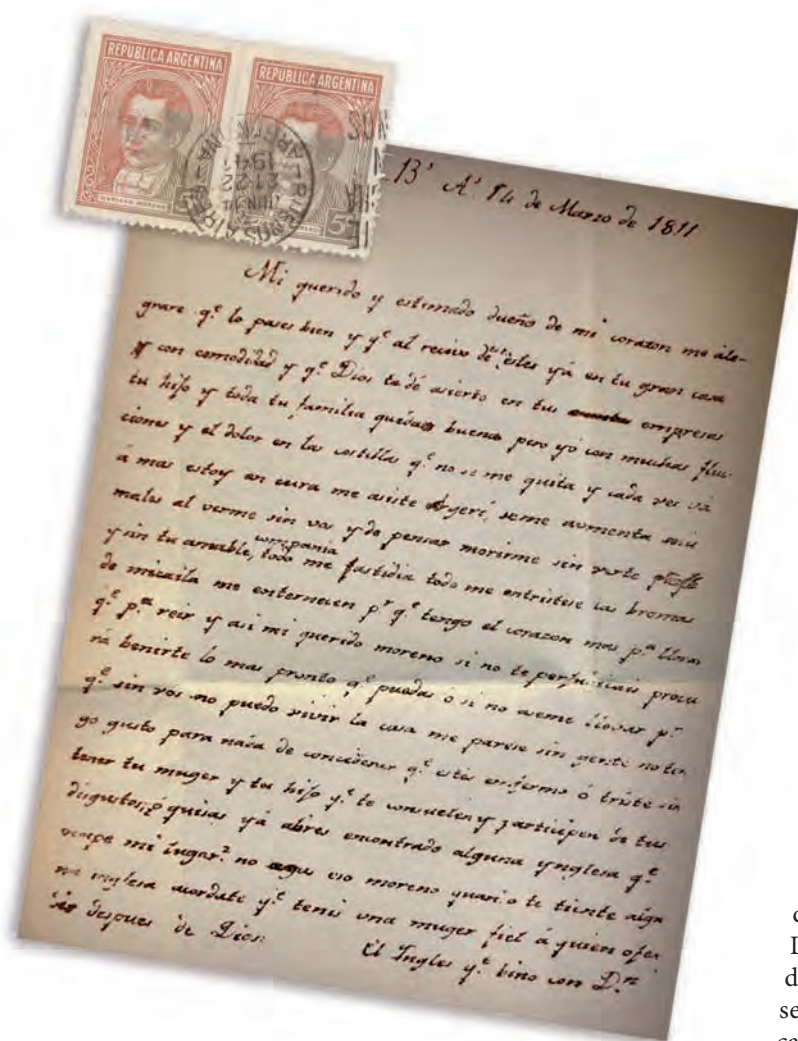 REPUBLICA ARGENTINA
REPUBLICA ARGENTINA
MARIANO MORENO
5
5
BUENOS AIRES
JUN
21
194
SUN
Bˢ Aˢ 14 de Marzo de 1811
Mi querido y estimado dueño de mi corazon me ale-
grare qᵉ lo pases bien y qᵉ al recivo de esta estes yá en tu gran casa
y con comodidad y qᵉ Dios te dé asierto en tus empresas
tu hijo y toda tu familia quedan buenos pero yó con muchas flu-
ciones y el dolor en las costillas qᵉ no se me quita y cada ves vá
á mas estoy en cura me asiste Argerí, seme aumenta mis
males al verme sin vos y de pensar morirme sin verte
y sin tu amable compania, todo me fastidia todo me entristese las bromas
de micaila me enternecen pʳ qᵉ tengo el corazon mas pᵃ llorar
qᵉ pᵃ reir y asi mi querido moreno si no te perjudicais procu
rá benirte lo mas pronto qᵉ puedas ó si no aseme llevar pʳ
qᵉ sin vos no puedo vivir la casa me parese sin gente no ten
go gusto para nada de considerar qᵉ estés enfermo ó triste sin
tener tu muger y tu hijo qᵉ te consuelen y participen de tus
disgustos; ó quisas yá abres encontrado alguna ynglesa qᵉ
ocupe mi lugar? no agas eso moreno quando te tiente algu
na inglesa acordate qᵉ tenes una muger fiel á quien ofen
des despues de Dios.
El Ingles qᵉ bino con Dⁿ